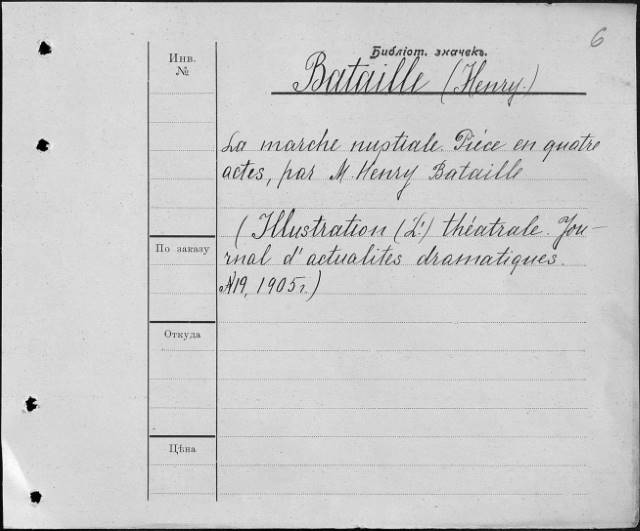 6
Библіот. значекъ.
Инв.
№
Bataille (Henry.)
La marche nuptiale. Piéce en quatre
actes, par M. Henry Bataille
(Illustration (L'.) théatrale. Jou-
rnal d'actualités dramatiques.
№19, 1905г.)
По заказу
Откуда
Цѣна